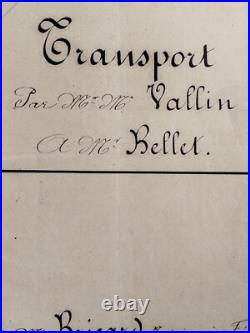 Transport
Par Mr. Mr. Vallin
A Mr. Bellet.